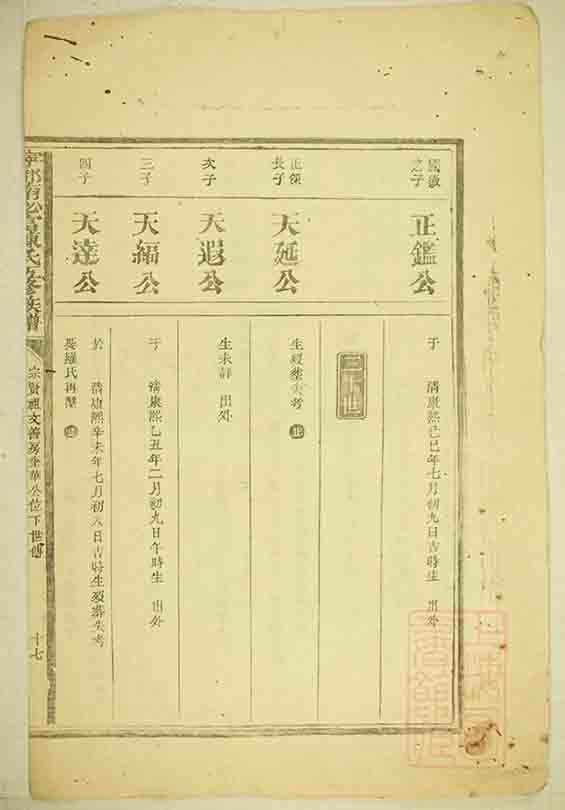 國徵
之子
正鑑公
于 清康熙己巳年七月初九日吉時生 出外
三十世
正深
長子
天延公
生歿葬失考 止
次子
天遐公
生未詳 出外
三子
天編公
于 清康熙乙丑年二月初九日午時生 出外
四子
天達公
於 清康熙辛未年七月初八日吉時生歿葬失考
娶羅氏再醮
氏五修族譜
宗賢祖文善房 華公位下世傳
十七